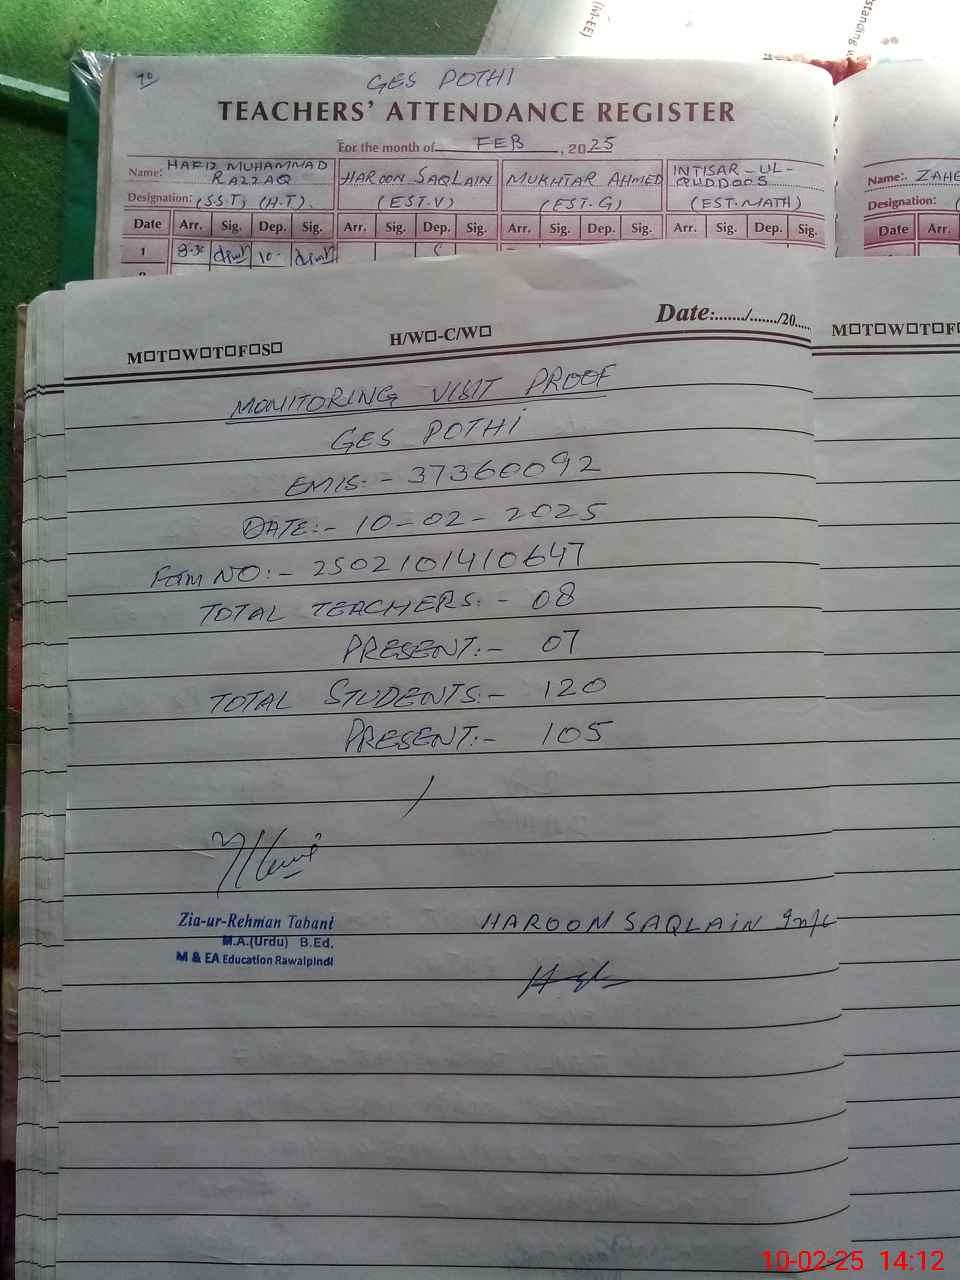 standing
(M-EE)
GES POTHI
TEACHERS' ATTENDANCE REGISTER
For the month of FEB, 2025
Name: HAFIZ MUHAMMAD RAZZAQ HAROON SAQLAIN MUKHTAR AHMED INTISAR-UL-QUDDOOS Name: ZAHE
Designation: (S.S.T) (H.T). (EST.V) (EST.G) (EST.MATH) Designation: (
Date Arr. Sig. Dep. Sig. Arr. Sig. Dep. Sig. Arr. Sig. Dep. Sig. Arr. Sig. Dep. Sig. Date Arr.
1 8.30 10
Date:......./......./20.....
M□T□W□T□F□S□ H/W□-C/W□ M□T□W□T□F
MONITORING VISIT PROOF
GES POTHI
EMIS:- 37360092
DATE:- 10-02-2025
Form NO:- 2502101410647
TOTAL TEACHERS:- 08
PRESENT:- 07
TOTAL STUDENTS:- 120
PRESENT:- 105
Zia-ur-Rehman Tabani
M.A.(Urdu) B.Ed.
M & EA Education Rawalpindi
HAROON SAQLAIN
10-02-25 14:12